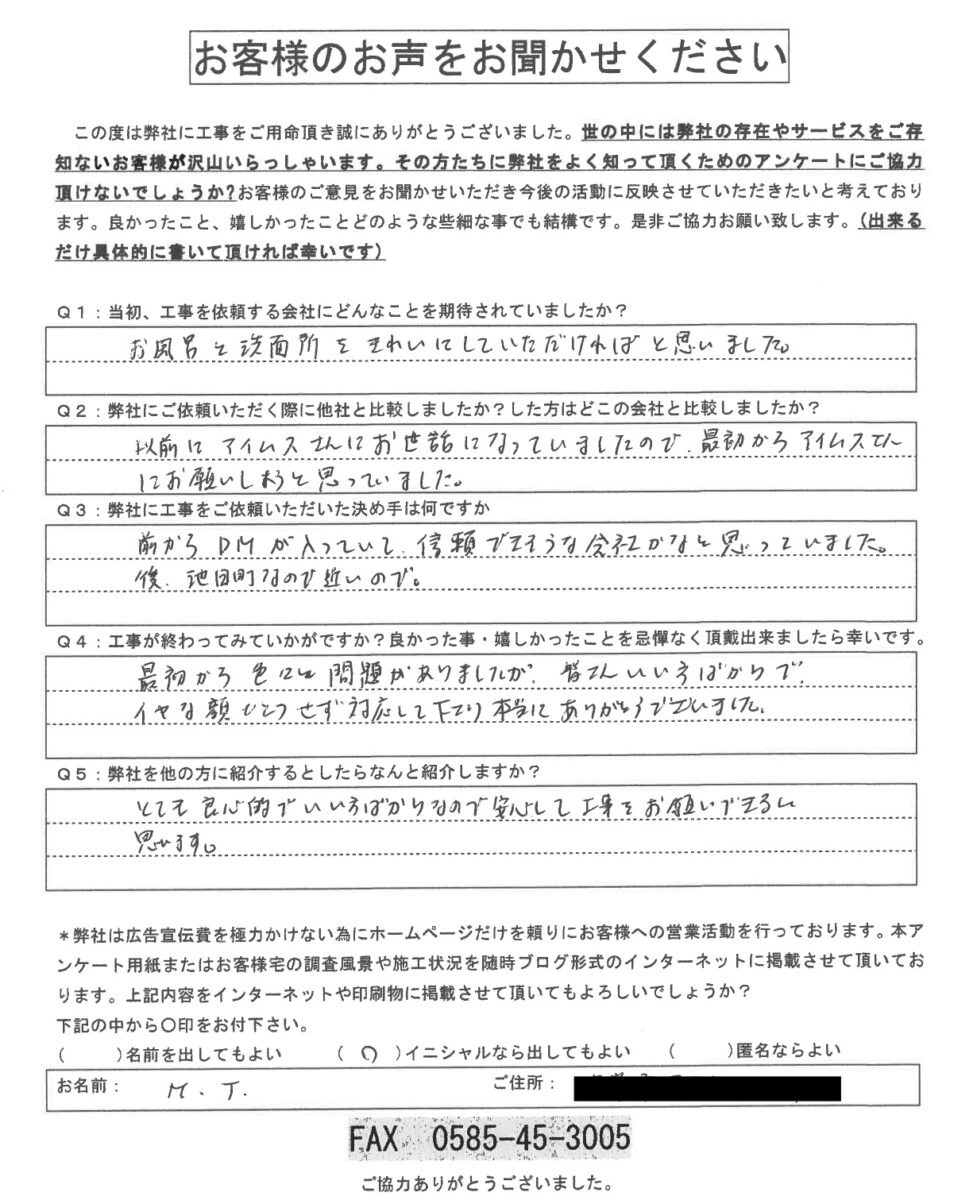 お客様のお声をお聞かせください
この度は弊社に工事をご用命頂き誠にありがとうございました。世の中には弊社の存在やサービスをご存
知ないお客様が沢山いらっしゃいます。その方たちに弊社をよく知って頂くためのアンケートにご協力
頂けないでしょうか?お客様のご意見をお聞かせいただき今後の活動に反映させていただきたいと考えており
ます。良かったこと、嬉しかったことどのような些細な事でも結構です。是非ご協力お願い致します。(出来る
だけ具体的に書いて頂ければ幸いです)
Q1:当初、工事を依頼する会社にどんなことを期待されていましたか?
お風呂と洗面所をきれいにしていただければと思いました。
Q2:弊社にご依頼いただく際に他社と比較しましたか?した方はどこの会社と比較しましたか?
以前にアイムスさんにお世話になっていましたので、最初からアイムスさん
にお願いしようと思っていました。
Q3:弊社に工事をご依頼いただいた決め手は何ですか
前からDMが入っていて、信頼できそうな会社かなと思っていました。
後、池田町なので近いので。
Q4:工事が終わってみていかがですか?良かった事・嬉しかったことを忌憚なく頂戴出来ましたら幸いです。
最初から色々と問題がありましたが、皆さんいい方ばかりで、
イヤな顔ひとつせず対応して下さり本当にありがとうございました。
Q5:弊社を他の方に紹介するとしたらなんと紹介しますか?
とても良心的でいい方ばかりなので安心して工事をお願いできると
思います。
*弊社は広告宣伝費を極力かけない為にホームページだけを頼りにお客様への営業活動を行っております。本ア
ンケート用紙またはお客様宅の調査風景や施工状況を随時ブログ形式のインターネットに掲載させて頂いてお
ります。上記内容をインターネットや印刷物に掲載させて頂いてもよろしいでしょうか?
下記の中から〇印をお付下さい。
( )名前を出してもよい (〇)イニシャルなら出してもよい ( )匿名ならよい
お名前: M.T. ご住所:
FAX 0585-45-3005
ご協力ありがとうございました。